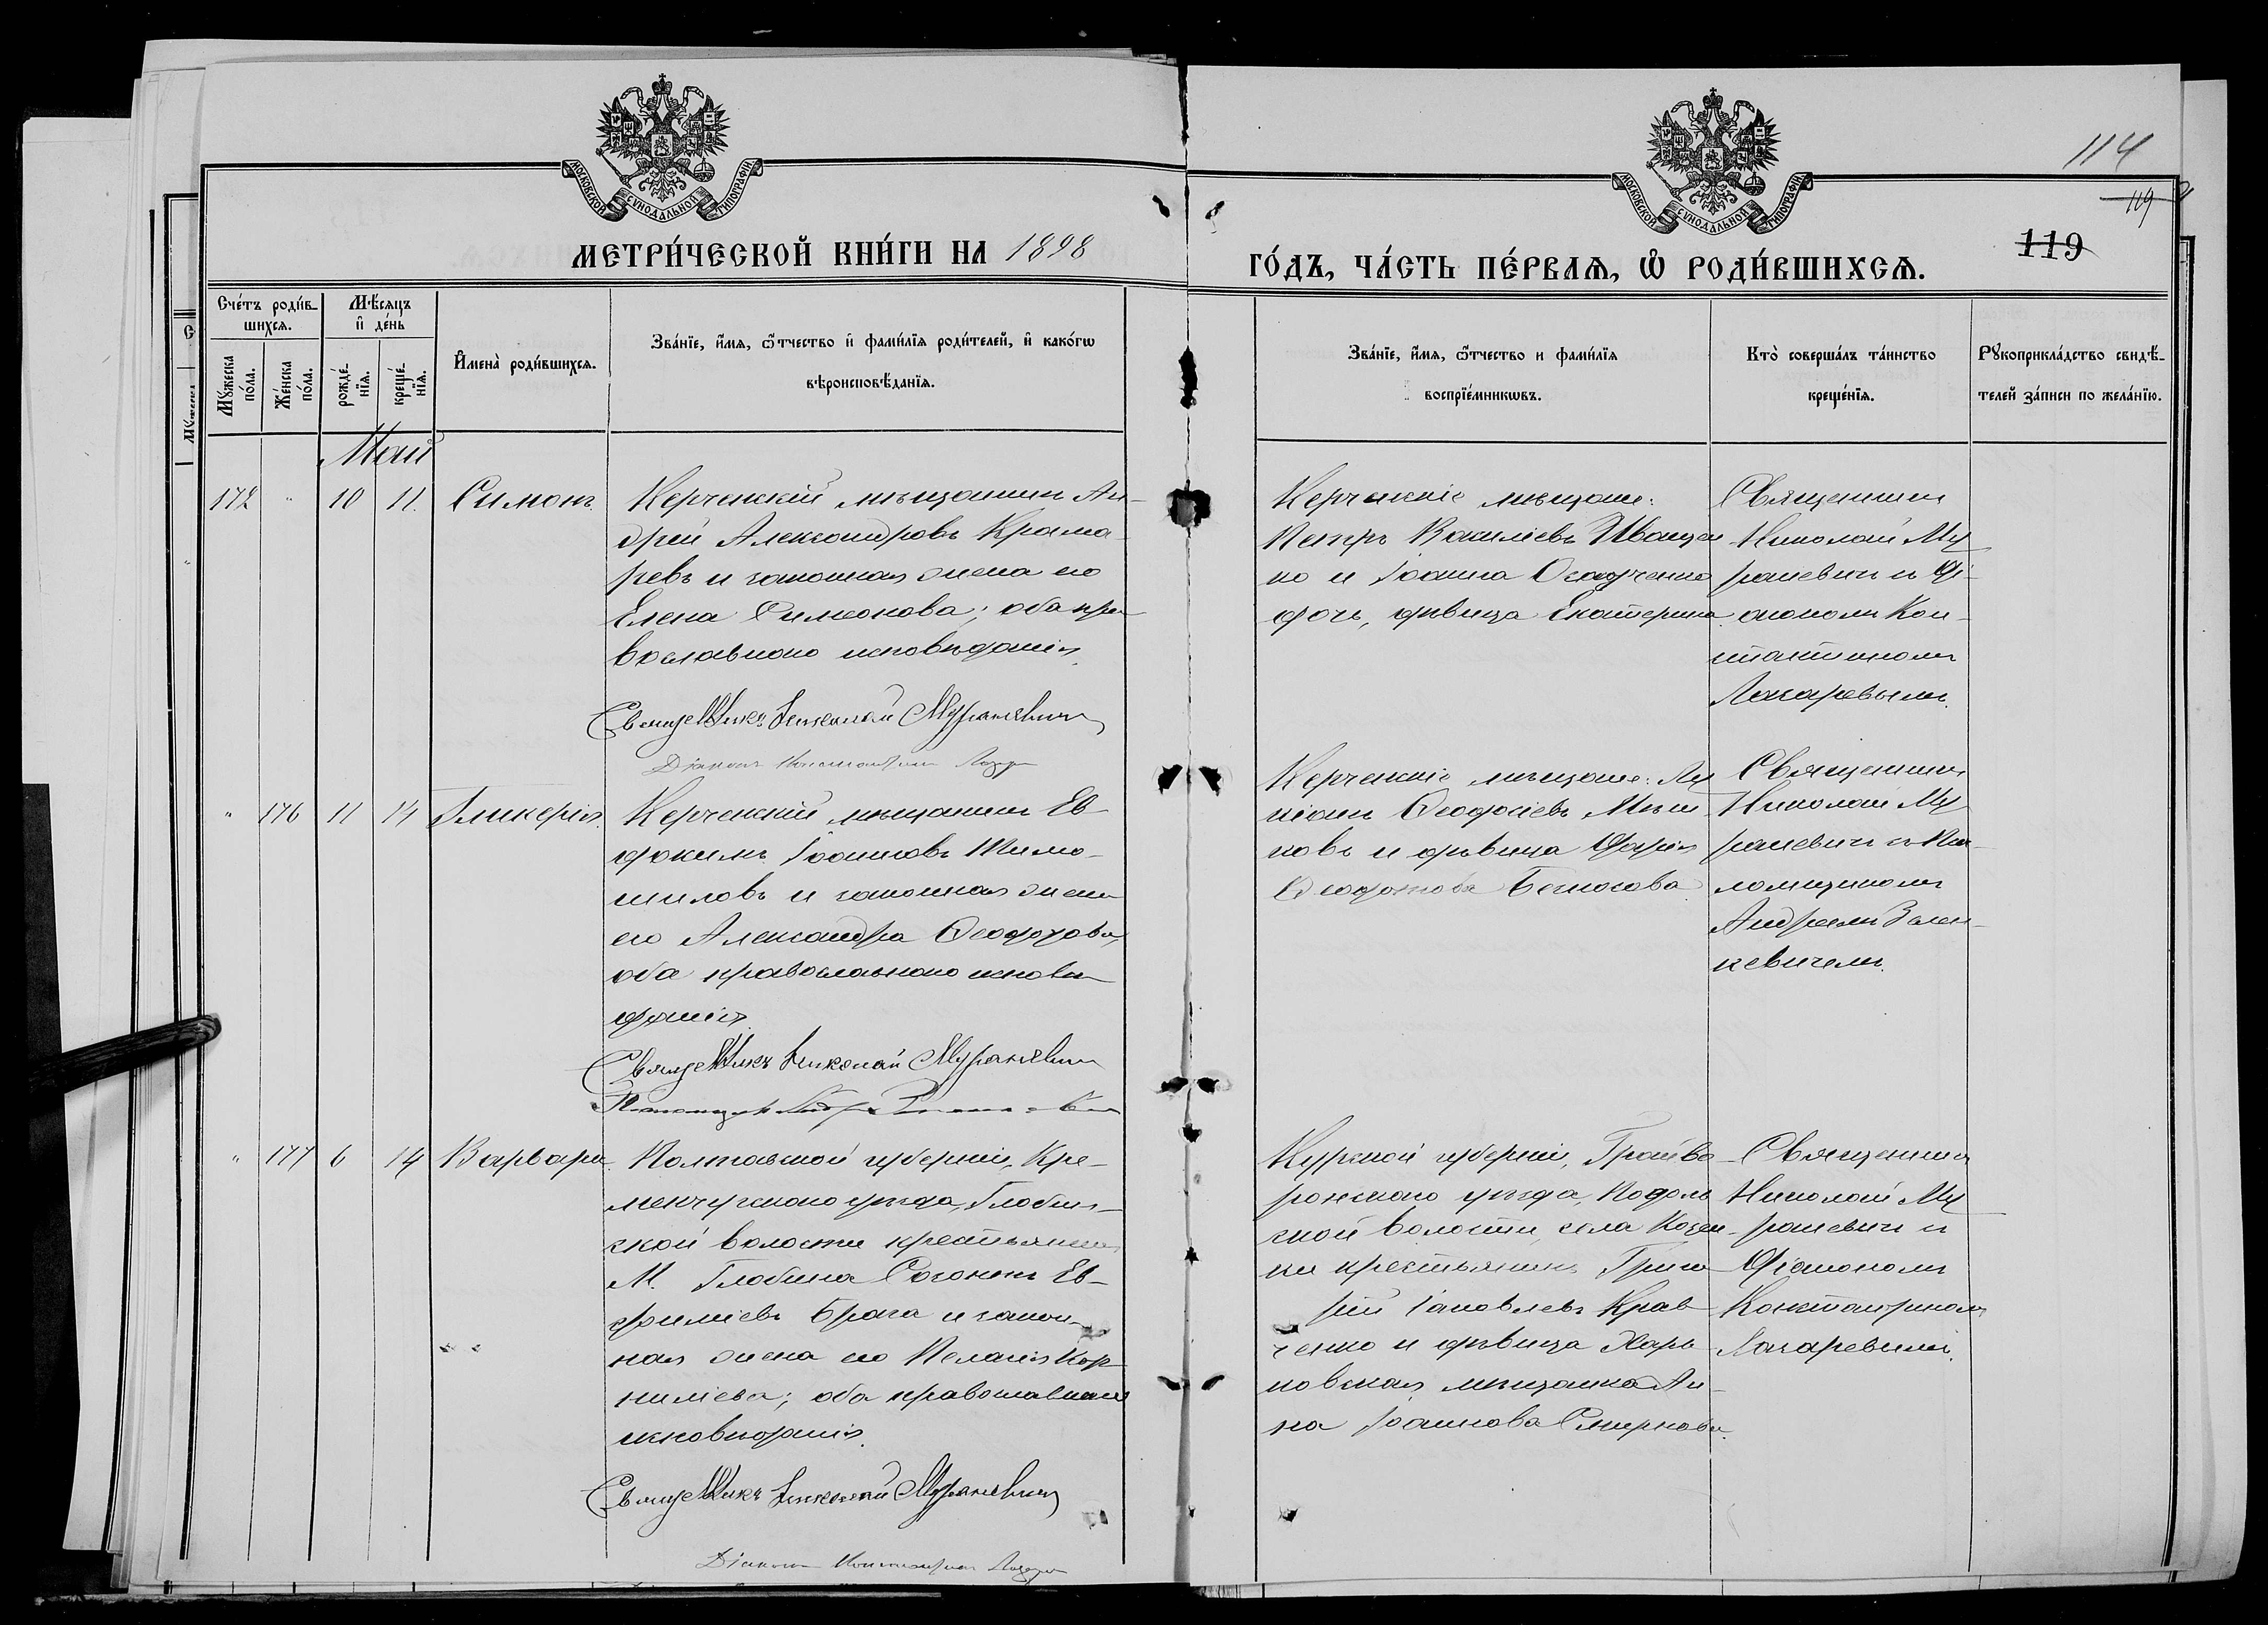 114
119
119
МОСКОВСКОЙ СѴНОДАЛЬНОЙ ТИПОГРАФІИ
МОСКОВСКОЙ СѴНОДАЛЬНОЙ ТИПОГРАФІИ
МЕТРИ́ЧЕСКОЙ КНИ́ГИ НА 1898
ГО́ДЪ, ЧА́СТЬ ПЕ́РВАѦ, Ѽ РОДИ́ВШИХСѦ.
Сче́тъ роди́в-
шихсѧ.
Мꙋжеска по́ла.
Же́нска по́ла.
Мѣ́сѧцъ
и҆ де́нь
рожде́-
нїѧ.
креще́-
нїѧ.
И҆мена̀ роди́вшихсѧ.
Зва́нїе, и҆́мѧ, ѻ҆́тчество и҆ фами́лїѧ роди́телей, и҆ како́гѡ
вѣроисповѣ́данїѧ.
Зва́нїе, и҆́мѧ, ѻ҆́тчество и фами́лїѧ
воспрїе́мникѡвъ.
Кто̀ соверша́лъ та́инство
креще́нїѧ.
Рꙋкоприкла́дство свидѣ́-
телей за́писи по жела́нїю.
Май
172 " 10 11. Симонъ.
Керченскій мѣщанинъ Ан-
дрей Александровъ Крама-
ревъ и законная жена его
Елена Симеонова; оба пра-
вославнаго исповѣданія.
Священникъ Николай Мураневичъ
Діаконъ Константинъ
Керченскіе мѣщане:
Петръ Василіевъ Иващен
ко и Іоанна Осадченко
дочь, дѣвица Екатерина.
Священникъ
Николай Му
раневичъ съ Ді-
акономъ Кон-
стантиномъ
Лазаревымъ.
" 176 11 14 Гликерія.
Керченскій мѣщанинъ Ев-
докимъ Іоанновъ
шиловъ и законная жена
его Александра Ѳеодорова,
оба православнаго исповѣ
данія.
Священникъ Николай Мураневичъ
Керченскіе мѣщане: Лу
кіанъ Ѳеодосіевъ
ковъ и дѣвица Дарія
Священникъ
Николай Му
раневичъ съ Пса-
ломщикомъ
Андреемъ Зален-
кевичемъ.
" 177 6 14 Варвара.
Полтавской губерніи, Кре-
менчугскаго уѣзда, Глобин-
ской волости крестьянинъ
М. Глобина Созонтъ Ев-
фиміевъ Брага и закон-
ная жена его Пелагія Кор-
нилиева; оба православнаго
исповѣданія.
Священникъ Николай Мураневичъ
Діаконъ Константинъ
Курской губерніи, Грайво-
ронскаго уѣзда, Подоль
ской волости, села Козин-
ки крестьянинъ Григо
рій Іаковлевъ Крав
ченко и дѣвица Харь
ковская мѣщанка Ан-
на Іоаннова Смирнова.
Священникъ
Николай Му
раневичъ съ
Діакономъ
Константиномъ
Лазаревымъ.